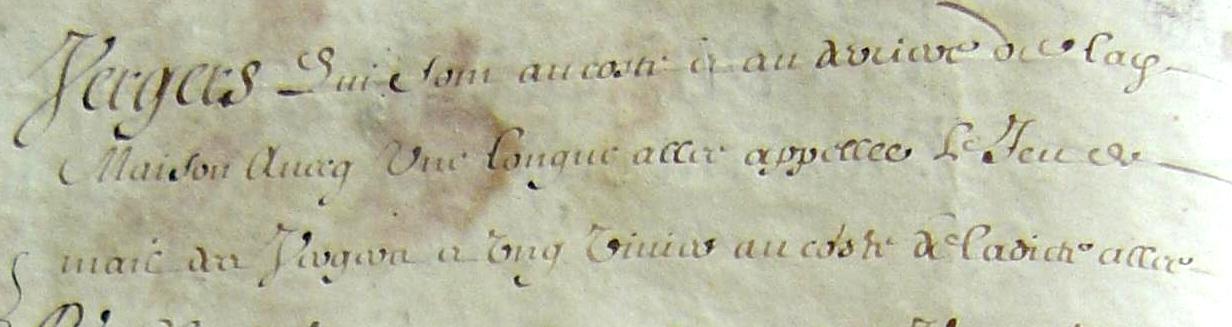 Vergers Qui sont au costé et au derriere de lad
Maison Avecq Une longue allee appellee Le Jeu de
mail des Vergers et Ung Vivier au costé de ladicte allee